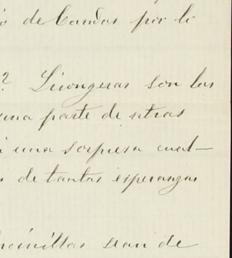 de bandas por lo
? Lisongeras son las
una parte de otras
una sorpresa cual-
de tantas esperanzas
sean de